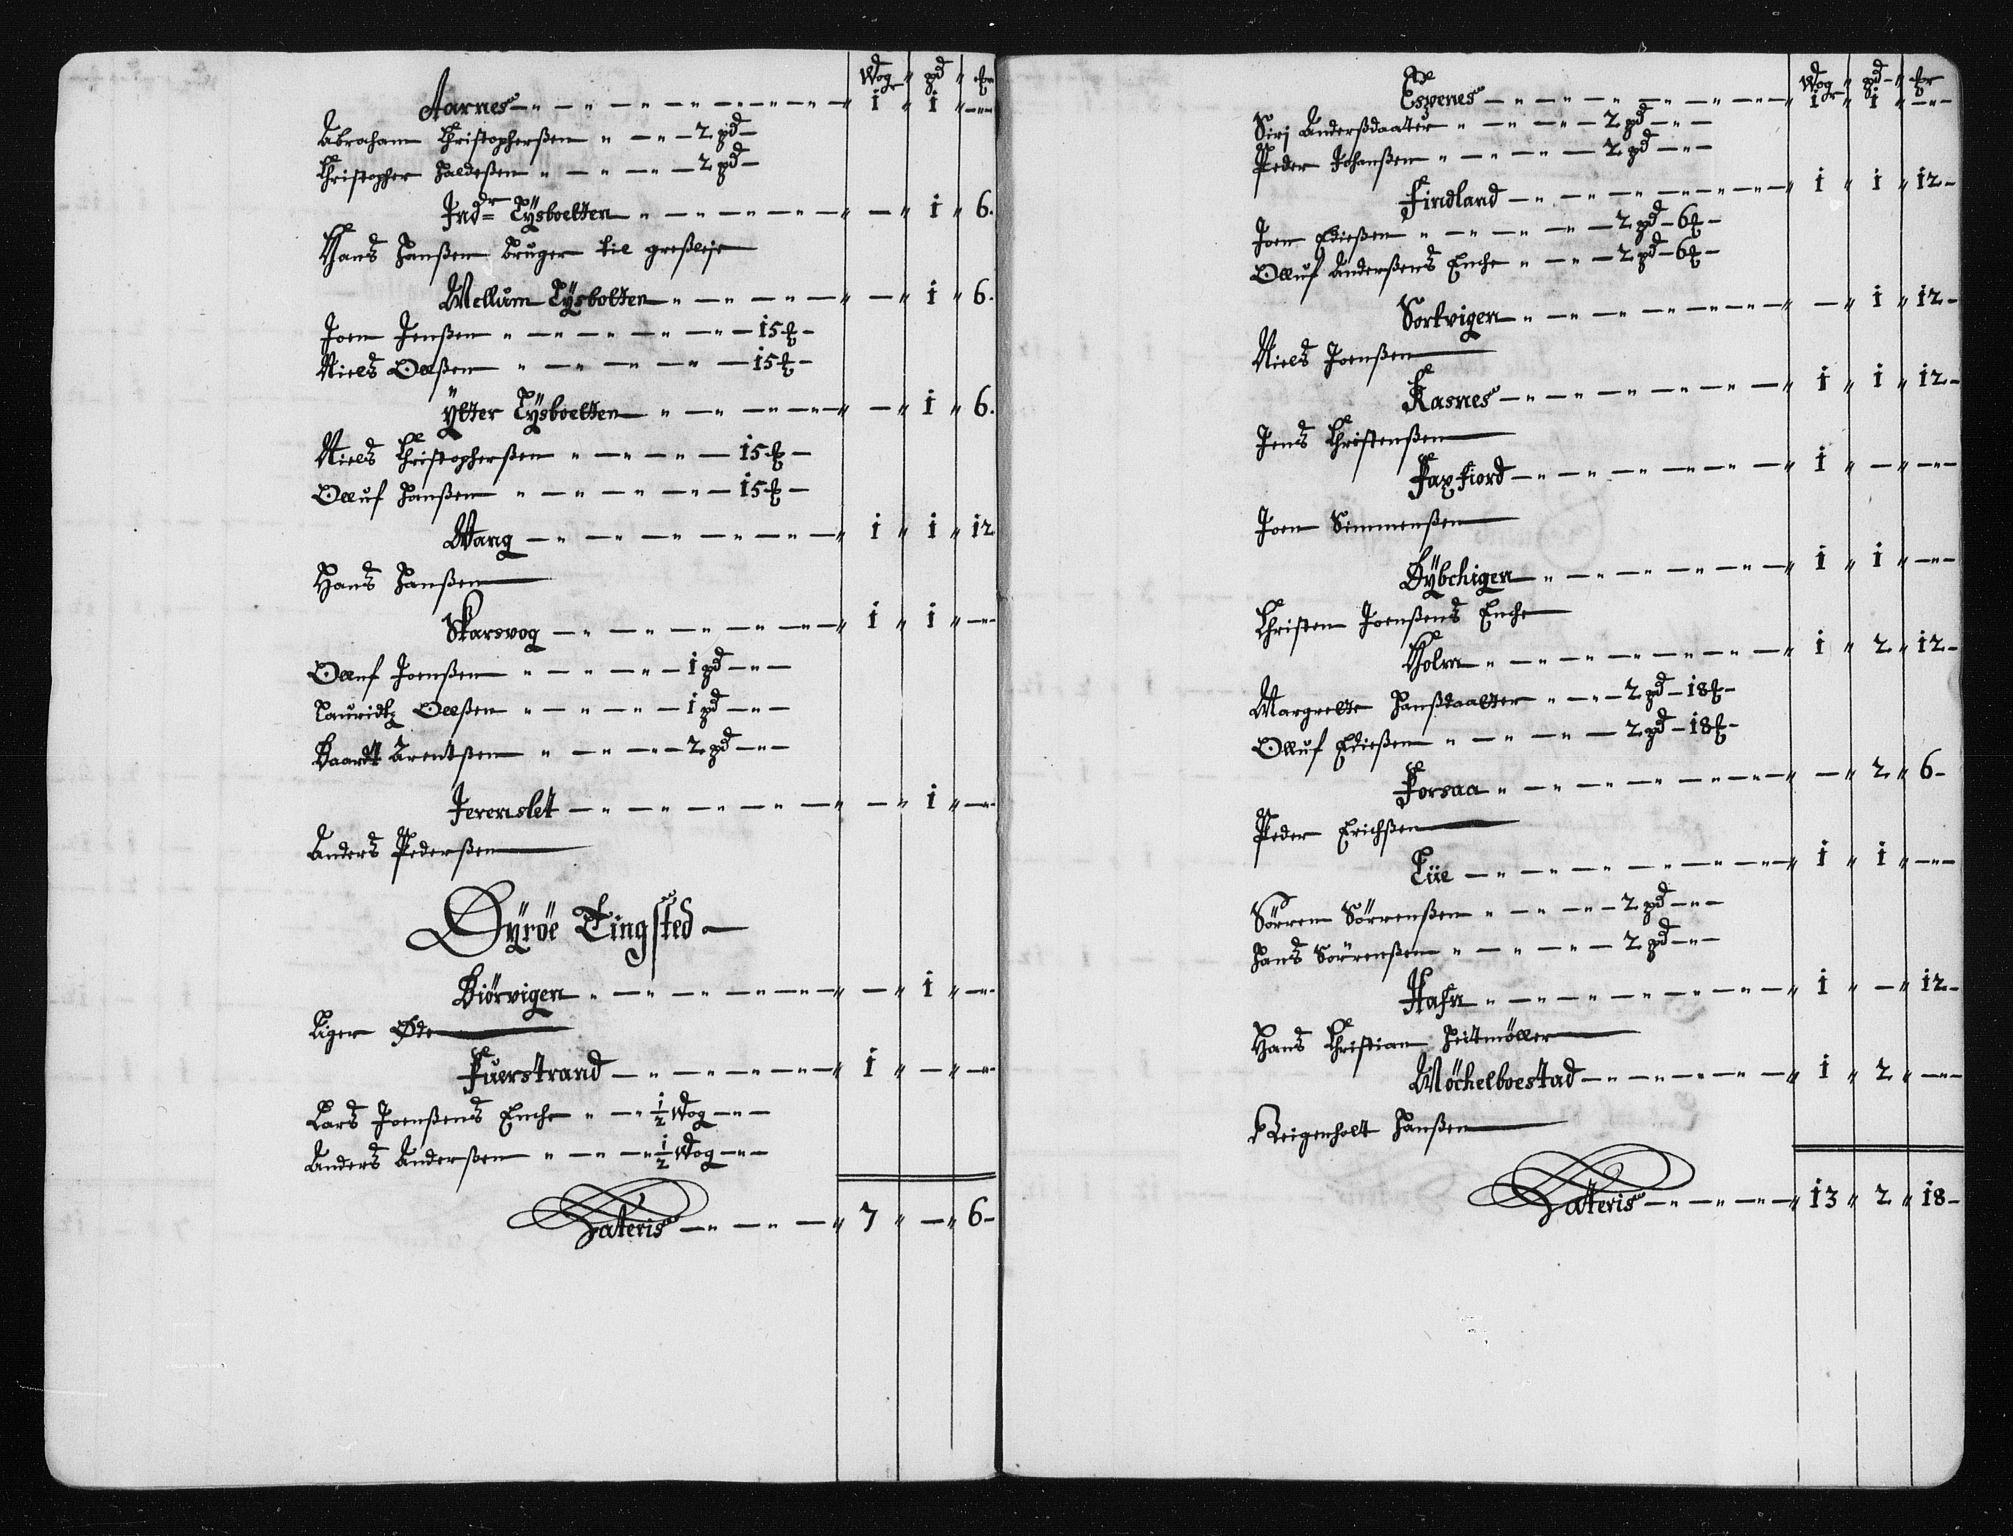 Wog " pd " ℔
Aarnes — i " i " —
Abraham Christopherßen " — 2 pd —
Christopher Haldeßen " — 2 pd —
Indr= Tÿsboelten " — " i " 6.
Hans Hanßen bruger til græßleje
Mellum Tÿsbolten " — " i " 6.
Joen Jenßen " — i5 ℔ —
Niels Olßen " — i5 ℔ —
Ÿtter Tÿsboelten " — " i " 6.
Niels Christopherßen " — i5 ℔ —
Olluf Hanßen " — i5 ℔ —
Wang — i " i " i2
Hans Hanßen
Skarsvog — i " i " —
Olluf Joenßen " — i pd —
Lauridtz Olßen " — i pd —
Baardt Arentsen " — 2 pd —
Jerenslet — " i " —
Anders Pederßen
Dÿröe Tingsted —
Biörvigen " — " i " —
Liger Øde
Fuerstrand — i " — " —
Lars Joenßens Enche " — ½ Wog —
Anders Anderßen " — ½ Wog —
Lateris — 7 " — " 6 —
Wog " pd " ℔
Espenes — i " i " —
Siri Anderßdaater " — 2 pd —
Peder Johanßen " — 2 pd —
Findland — i " i " i2 —
Joen Edißen " — 2 pd — 6 ℔ —
Olluf Anderßens Enche " — 2 pd — 6 ℔ —
Sortvigen " — " i " i2 —
Niels Joenßen
Kasnes — i " i " i2 —
Jens Christenßen
Faxfiord — i " — " —
Joen Simmenßen
Dÿbchigen " — i " i " —
Christen Joenßens Enche
Holm " — i " 2 " i2 —
Margrette Hanßdaatter " — 2 pd — i8 ℔ —
Olluf Edißen " — 2 pd — i8 ℔ —
Forsaa " — " 2 " 6 —
Peder Erichßen
Tüe — i " i " —
Sörren Sörrenßen " — 2 pd —
Hans Sörrenßen " — 2 pd —
Hafn " — i " — " i2 —
Hans Christian Heitmöller
Möchelboestad — i " 2 " —
Reigenholt Hanßen
Lateris — i3 " 2 " i8 —